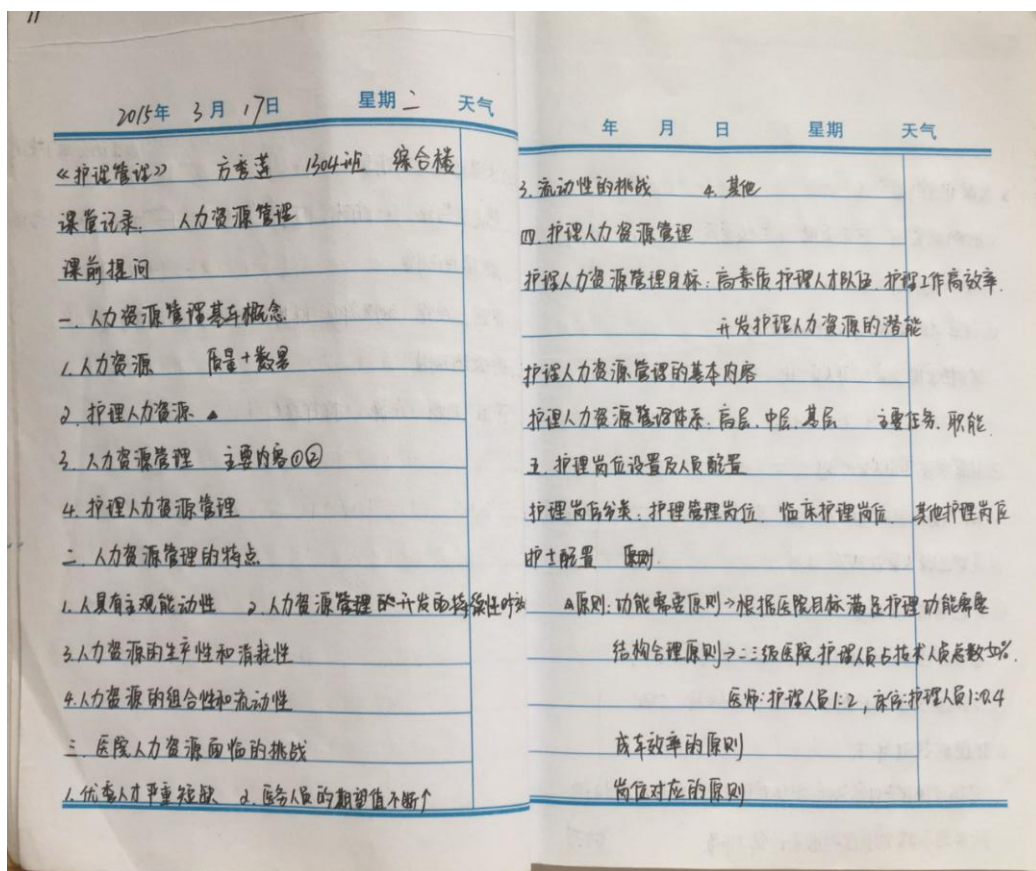 11
2015年 3月 17日 星期二 天气
《护理管理》 方秀莲 1304班 综合楼
课堂记录： 人力资源管理
课前提问
一. 人力资源管理基本概念
1. 人力资源 质量+数量
2. 护理人力资源 ▲
3. 人力资源管理 主要内容①②
4. 护理人力资源管理
二. 人力资源管理的特点
1. 人具有主观能动性 2. 人力资源管理 开发的持续性
3. 人力资源的生产性和消耗性
4. 人力资源的组合性和流动性
三. 医院人力资源面临的挑战
1. 优秀人才严重短缺 2. 医务人员的期望值不断↑
年 月 日 星期 天气
3. 流动性的挑战 4. 其他
四. 护理人力资源管理
护理人力资源管理目标：高素质护理人才队伍. 护理工作高效率.
开发护理人力资源的潜能
护理人力资源管理的基本内容
护理人力资源管理体系：高层. 中层. 基层 主要任务. 职能.
五. 护理岗位设置及人员配置
护理岗位分类：护理管理岗位. 临床护理岗位. 其他护理岗位
护士配置 原则.
▲原则：功能需要原则→根据医院目标满足护理功能需要
结构合理原则→二三级医院护理人员占技术人员总数50%.
医师:护理人员1:2，床位:护理人员1:0.4
成本效率的原则
岗位对应的原则